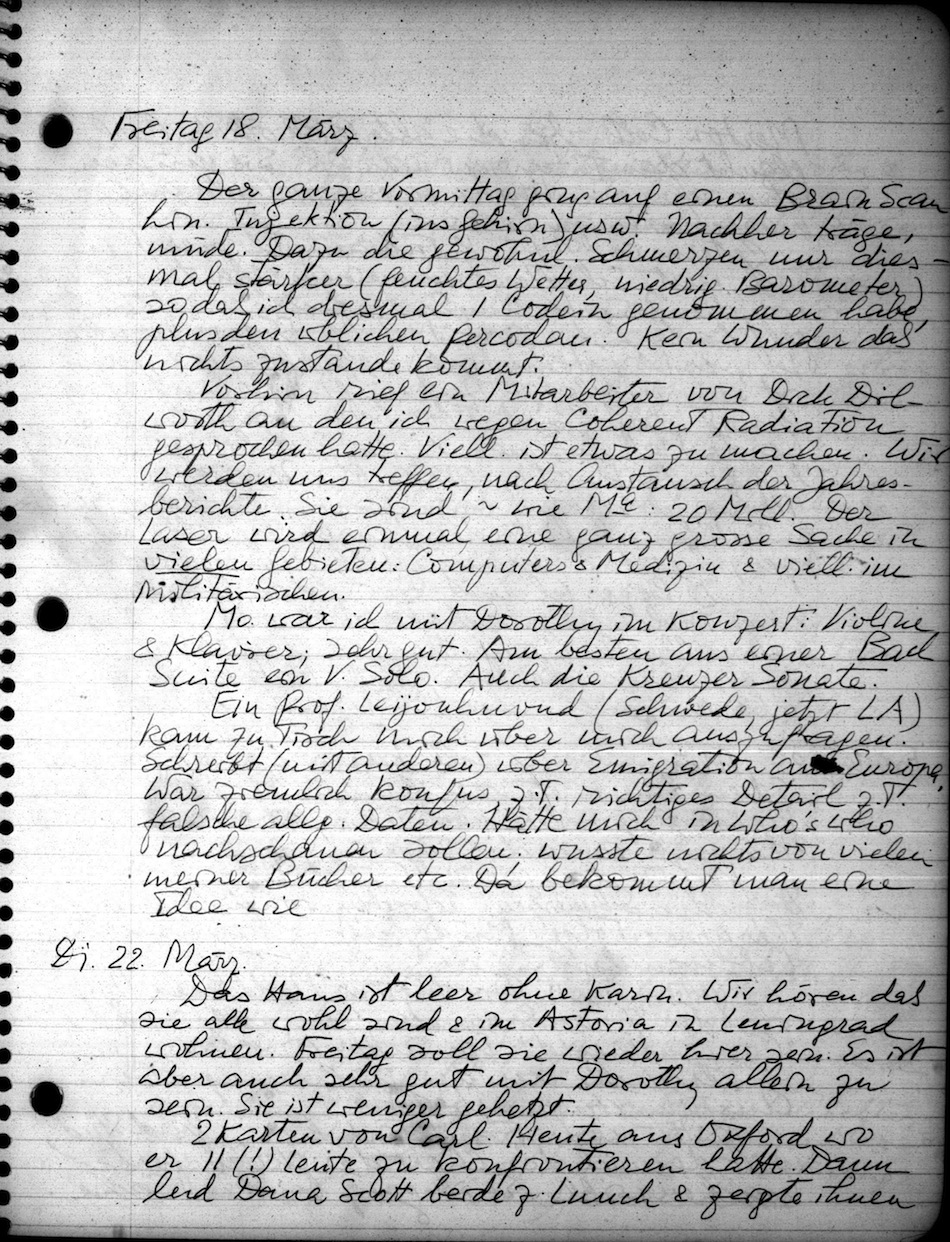 Freitag 18. März.
Der ganze Vormittag ging auf einen Brain Scan
hin. Injektion (ins Gehirn) usw. Nachher träge,
müde. Dazu die gewöhnl. Schmerzen nur dies-
mal stärker (feuchtes Wetter, niedrig. Barometer)
sodas ich diesmal 1 Codein genommen habe,
plus den üblichen Percodan. Kein Wunder das
nichts zustande kommt.
Vorhin rief ein Mitarbeiter von Dick Dil-
worth an den ich wegen Coherent Radiation
gesprochen hatte. Viell. ist etwas zu machen. Wir
werden uns treffen, nach Austausch der Jahres-
berichte. Sie sind ~ wie : 20 Mill. Der
Laser wird einmal eine ganz grosse Sache in
vielen Gebieten: Computers & Medizin & viell. im
Militärischen.
Mo. war ich mit Dorothy im Konzert: Violine
& Klavier; sehr gut. Am besten aus einer Bach
Suite ein V. Solo. Auch die Kreuzer Sonate.
Ein Prof. Leijonhuvud (Schwede, jetzt LA)
kam zu Tisch mich über mich auszufragen.
Schreibt (mit anderen) über Emigration aus Europa.
War ziemlich konfus, z.T. richtiges Detail z.T.
falsche allg. Daten. Hätte mich in Who's Who
nachschauen sollen; wusste nichts von vielen
meiner Bücher etc. Da bekommt man eine
Idee wie
Di. 22. März.
Das Haus ist leer ohne Karin. Wir hören das
sie alle wohl sind & im Astoria in Leningrad
wohnen. Freitag soll sie wieder hier sein. Es ist
aber auch sehr gut mit Dorothy allein zu
sein. Sie ist weniger gehetzt.
2 Karten von Carl. Heute aus Oxford wo
er 11 (!) Leute zu konfrontieren hatte. Dann
lud Dana Scott beide z. Lunch & zeigte ihnen